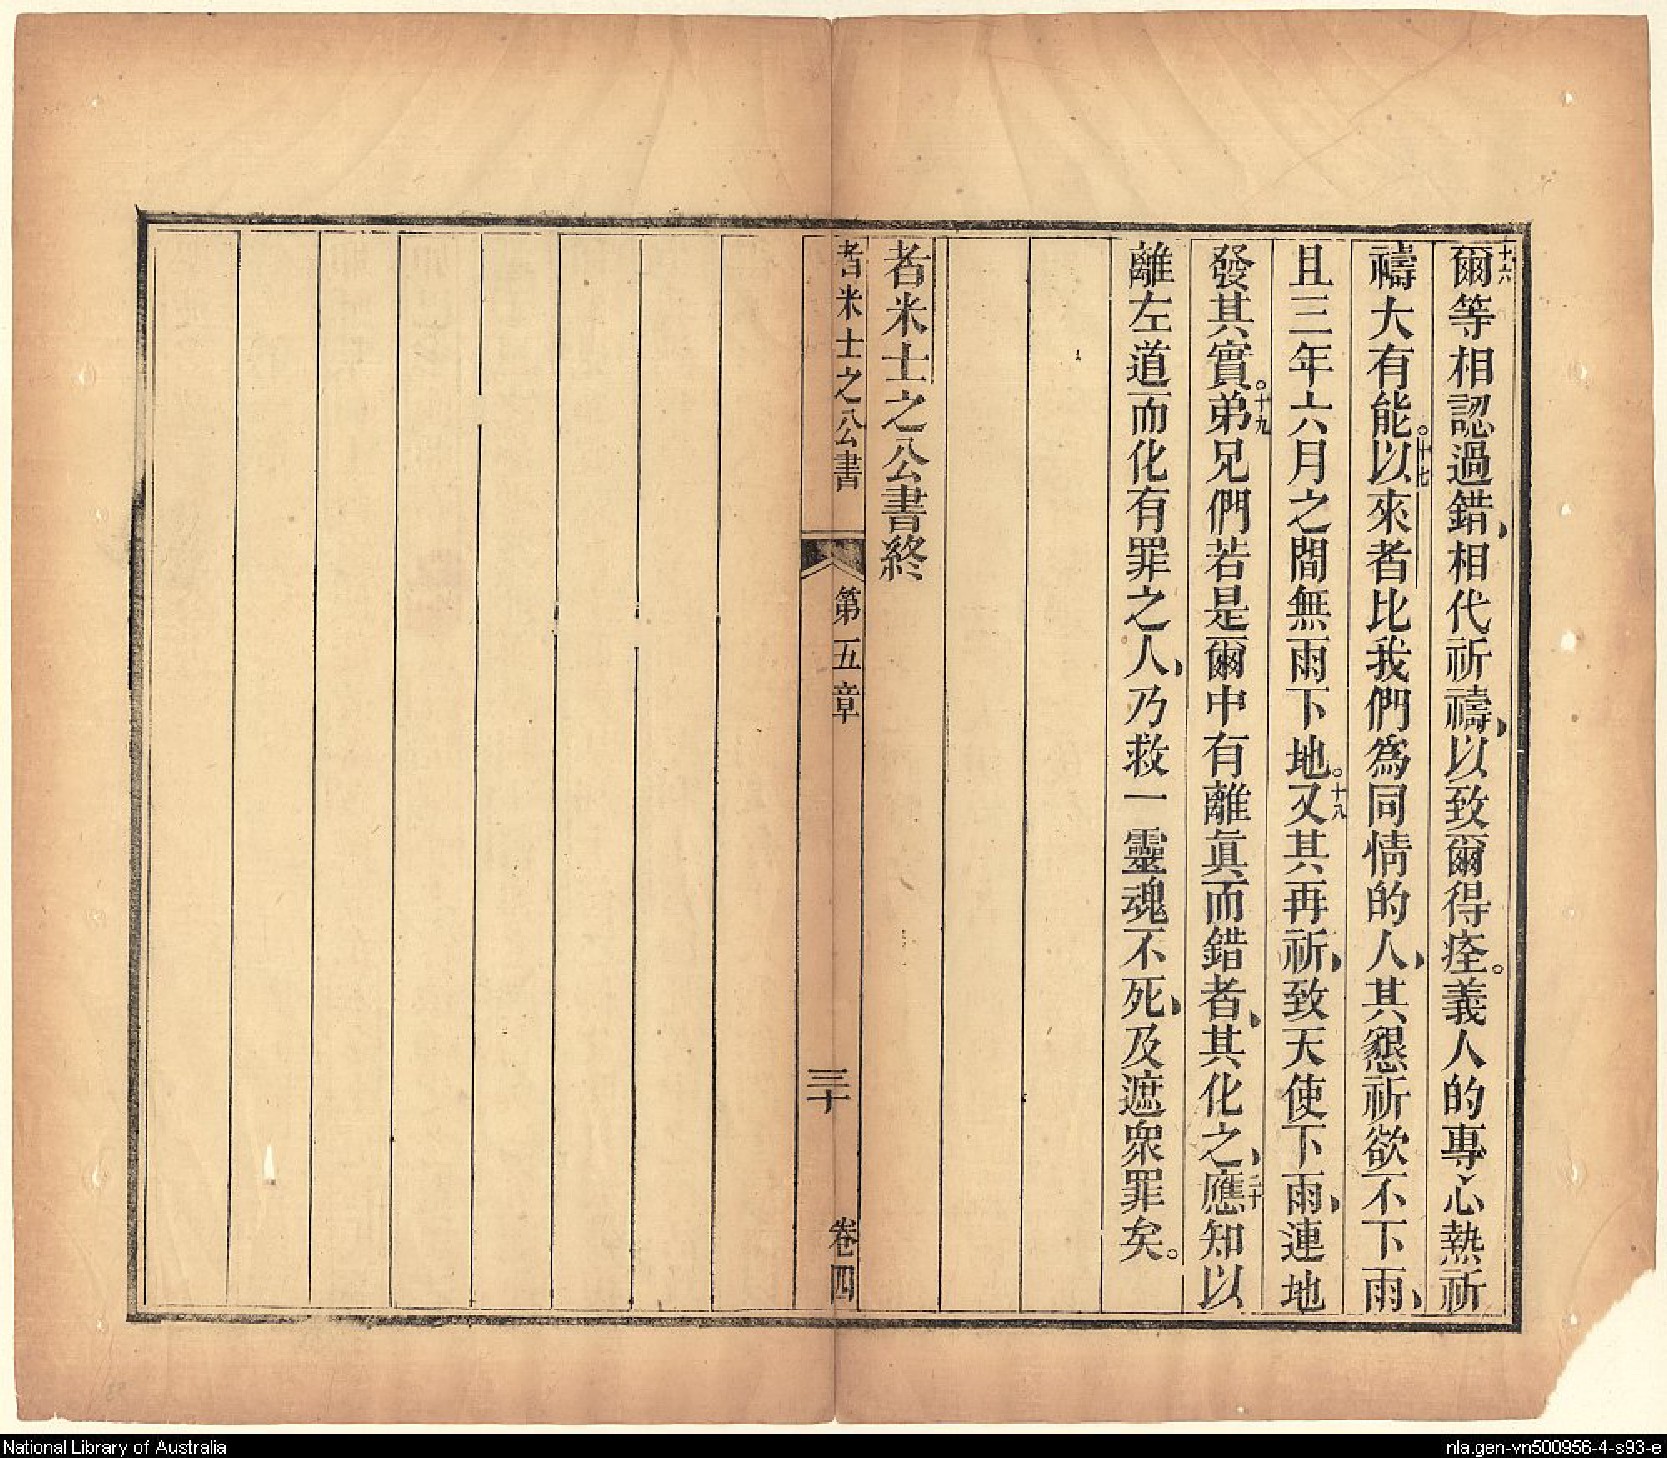 十六爾等相認過錯、相代祈禱、以致爾得痊。義人的專心熱祈
禱大有能。十七以來者比我們為同情的人、其懇祈欲不下雨、
且三年六月之間無雨下地。十八又其再祈、致天使下雨、連地
發其實。十九弟兄們若是爾中有離眞而錯者、其化之、二十應知以
離左道而化有罪之人、乃救一靈魂不死、及遮衆罪矣。
者米士之公書終
者米士之公書 第五章 三十 卷四
National Library of Australia
nla.gen-vn500956-4-s93-e